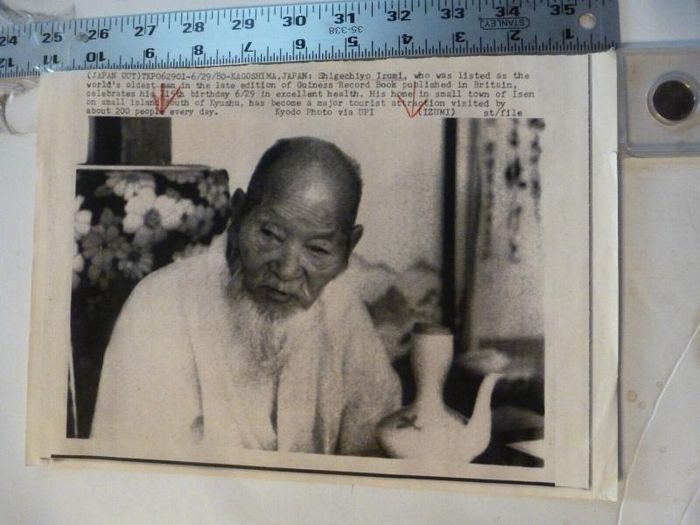 24 25 26 27 28 29 30 31 32 33 34 35
35-338 STANLEY
10 9 8 7 6 5 4 3 2 1
(JAPAN OUT)TKP062901-6/29/80-KAGOSHIMA,JAPAN: Shigechiyo Izumi, who was listed as the
world's oldest man in the late edition of Guiness Record Book published in Britain,
celebrates his 115th birthday 6/29 in excellent health. His home in small town of Isen
on small island south of Kyushu, has become a major tourist attraction visited by
about 200 people every day. Kyodo Photo via UPI (IZUMI) st/file